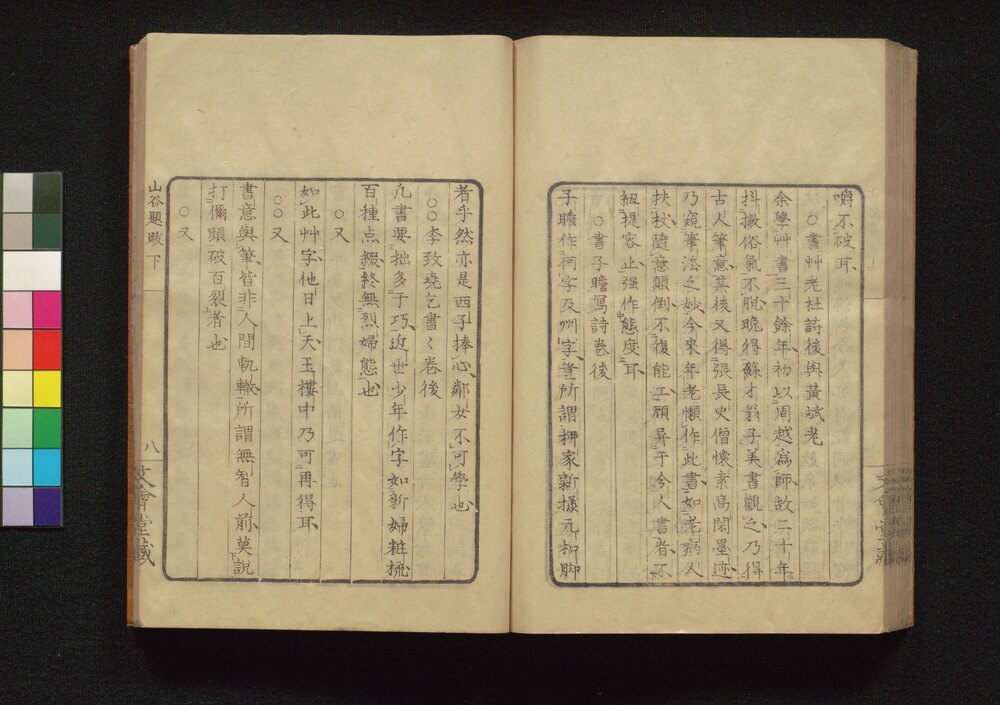 嚼不破耳
○書艸老杜詩後與黃斌老
余學艸書三十餘年初以周越為師故二十年
抖擻俗氣不脫晚得蘇才翁子美書觀之乃得
古人筆意其後又得張長史僧懷素高閑墨迹
乃窺筆法之妙今來年老懶作此書如老病人
扶杖隨意顛倒不復能工顧异于今人書者不
紐提容止强作態度耳
○書子瞻寫詩卷後
子瞻作柯字及州字登所謂柳家新樣元和脚
者乎然亦是西子捧心鄰女不可學也
○○李致堯乞書〻卷後
凡書要拙多于巧近世少年作字如新婦粧梳
百種点綴終無烈婦態也
○又
如此艸字他日上天玉樓中乃可再得耳
○○又
書意與筆皆非人間軌轍所謂無智人前莫說
打儞頭破百裂者也
○又
山谷題跋 下
八
文會堂藏